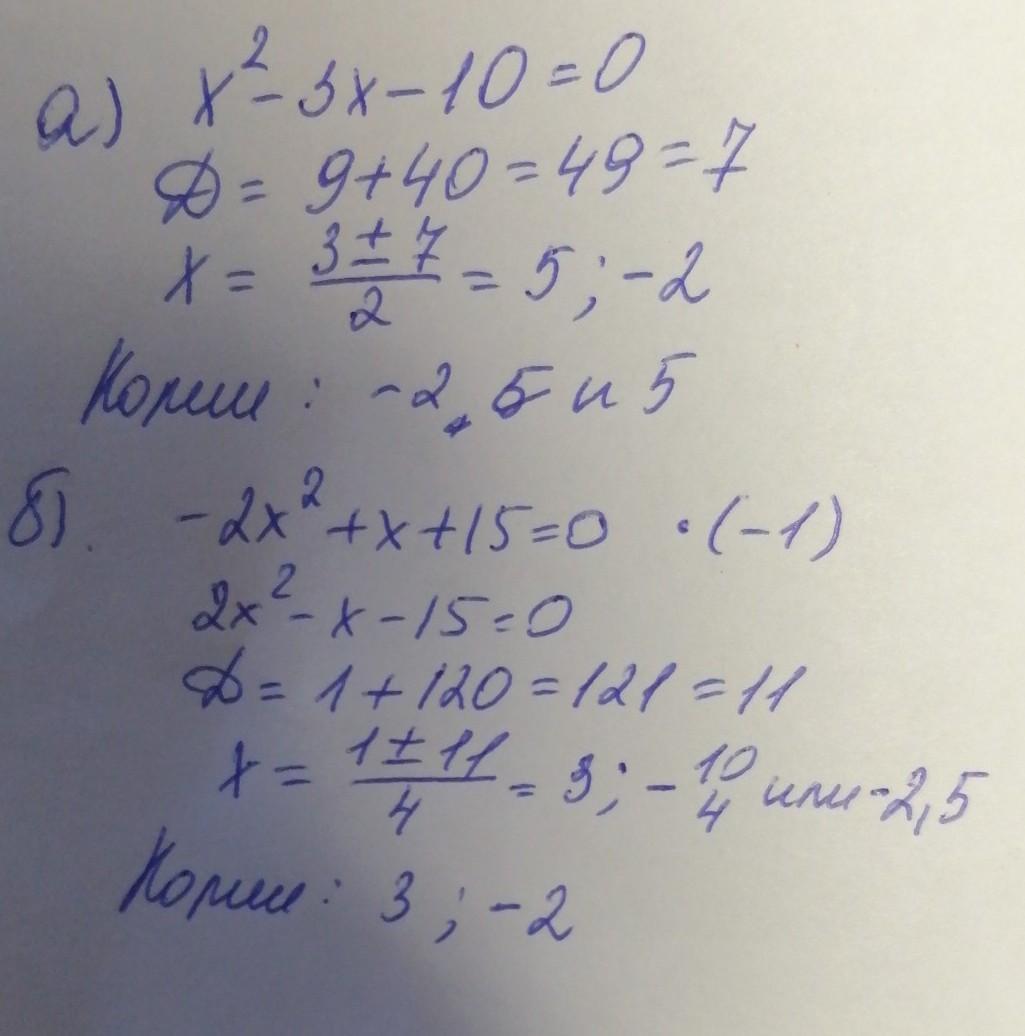 а) x² - 3x - 10 = 0
D = 9 + 40 = 49 = 7
x = (3 ± 7)/2 = 5 ; -2
Корни : -2 и 5
б). -2x² + x + 15 = 0 · (-1)
2x² - x - 15 = 0
D = 1 + 120 = 121 = 11
x = (1 ± 11)/4 = 3 ; - 10/4 или -2,5
Корни : 3 ; -2